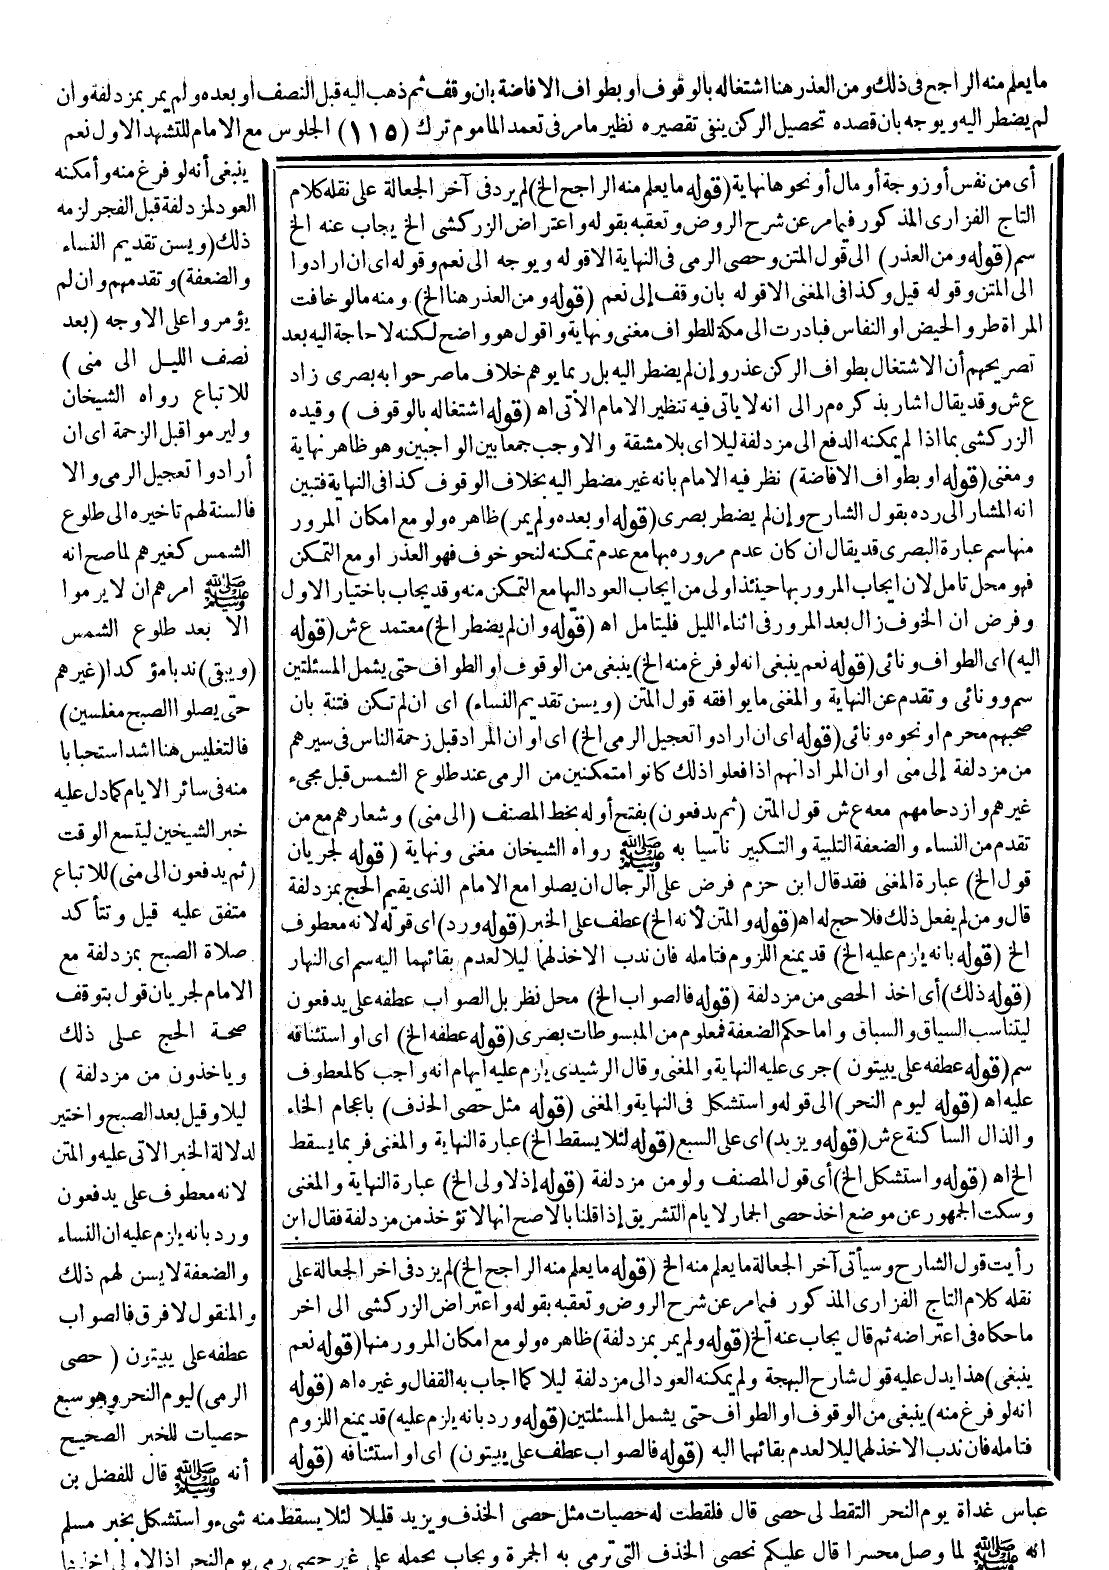 مايعلم منه الراجح فى ذلك ومن العذر هنا اشتغاله بالوقوف أو بطواف الافاضة بان وقف ثم ذهب اليه قبل النصف أو بعده ولم يمر بمزدلفة وان
لم يضطر اليه ويوجه بان قصده تحصيل الركن ينفى تقصيره نظير مامر فى تعمد المأموم ترك (١١٥) الجلوس مع الامام للتشهد الاول نعم
ينبغى أنه لو فرغ منه وأمكنه
العود لمزدلفة قبل الفجر لزمه
ذلك (ويسن تقديم النساء
والضعفة) وتقدمهم وان لم
يؤمروا على الاوجه (بعد
نصف الليل الى منى)
للاتباع رواه الشيخان
وليرموا قبل الزحمة اى ان
أرادوا تعجيل الرمى والا
فالسنة لهم تأخيره الى طلوع
الشمس كغيرهم لما صح انه
ﷺ امرهم ان لا يرموا
الا بعد طلوع الشمس
(ويبقى) ندبا مؤكدا (غيرهم
حتى يصلوا الصبح مغلسين)
فالتغليس هنا اشد استحبابا
منه فى سائر الايام كما دل عليه
خبر الشيخين ليتسع الوقت
(ثم يدفعون الى منى) للاتباع
متفق عليه قيل وتتأكد
صلاة الصبح بمزدلفة مع
الامام لجريان قول بتوقف
صحة الحج على ذلك
(وياخذون من مزدلفة)
ليلا وقيل بعد الصبح واختير
لدلالة الخبر الاتى عليه والمتن
لانه معطوف على يدفعون
ورد بانه يلزم عليه ان النساء
والضعفة لا يسن لهم ذلك
والمنقول لا فرق فالصواب
عطفه على يبيتون (حصى
الرمى) ليوم النحر وهو سبع
حصيات للخبر الصحيح
أنه ﷺ قال للفضل بن
أى من نفس أو زوجة أو مال أو نحوها نهاية (قوله مايعلم منه الراجح الخ) لم يرد فى آخر الجعالة على نقله كلام
التاج الفزارى المذكور فيما مر عن شرح الروض وتعقبه بقوله واعتراض الزركشى الخ يجاب عنه الخ
سم (قوله ومن العذر) الى قول المتن وحصى الرمى فى النهاية الا قوله ويوجه الى نعم وقوله اى ان ارادوا
الى المتن وقوله قيل وكذا فى المغنى الا قوله بان وقف إلى نعم (قوله ومن العذر هنا الخ) ومنه مالو خافت
المراة طرو الحيض او النفاس فبادرت الى مكة للطواف مغنى ونهاية واقول هو واضح لكنه لا حاجة اليه بعد
تصريحهم أن الاشتغال بطواف الركن عذر وإن لم يضطر اليه بل ربما يوهم خلاف ماصرحوا به بصرى زاد
ع ش وقد يقال اشار بذكره م ر الى انه لا ياتى فيه تنظير الامام الآتى اه (قوله اشتغاله بالوقوف) وقيده
الزركشى بما اذا لم يمكنه الدفع الى مزدلفة ليلا اى بلا مشقة والا وجب جمعا بين الواجبين وهو ظاهر نهاية
ومغنى (قوله او بطواف الافاضة) نظر فيه الامام بانه غير مضطر اليه بخلاف الوقوف كذا فى النهاية فتبين
انه المشار الى رده بقول الشارح وإن لم يضطر بصرى (قوله او بعده ولم يمر) ظاهره ولو مع امكان المرور
منها سم عبارة البصرى قد يقال ان كان عدم مروره بها مع عدم تمكنه لنحو خوف فهو العذر او مع التمكن
فهو محل تامل لان ايجاب المرور بها حينئذ اولى من ايجاب العود اليها مع التمكن منه وقد يجاب باختيار الاول
وفرض ان الخوف زال بعد المرور فى اثناء الليل فليتامل اه (قوله وان لم يضطر الخ) معتمد ع ش (قوله
اليه) اى الطواف ونائى (قوله نعم ينبغى انه لو فرغ منه الخ) ينبغى من الوقوف او الطواف حتى يشمل المسئلتين
سم وونائى وتقدم عن النهاية والمغنى مايوافقه قول المتن (ويسن تقديم النساء) اى ان لم تكن فتنة بان
صحبهم محرم او نحوه ونائى (قوله اى ان ارادوا تعجيل الرمى الخ) اى او ان المراد قبل زحمة الناس فى سيرهم
من مزدلفة إلى منى او ان المراد انهم اذا فعلوا ذلك كانوا متمكنين من الرمى عند طلوع الشمس قبل مجىء
غيرهم وازدحامهم معه ع ش قول المتن (ثم يدفعون) بفتح أوله بخط المصنف (الى منى) وشعارهم مع من
تقدم من النساء والضعفة التلبية والتكبير تأسيا به ﷺ رواه الشيخان مغنى ونهاية (قوله لجريان
قول الخ) عبارة المغنى فقد قال ابن حزم فرض على الرجال ان يصلوا مع الامام الذى يقيم الحج بمزدلفة
قال ومن لم يفعل ذلك فلا حج له اه (قوله والمتن لانه الخ) عطف على الخبر (قوله ورد) اى قوله لانه معطوف
الخ (قوله بانه يلزم عليه الخ) قد يمنع اللزوم فتامله فان ندب الاخذ لهما ليلا لعدم بقائهما اليه سم اى النهار
(قوله ذلك) أى اخذ الحصى من مزدلفة (قوله فالصواب الخ) محل نظر بل الصواب عطفه على يدفعون
ليتناسب السياق والسباق واما حكم الضعفة فمعلوم من المبسوطات بصرى (قوله عطفه الخ) اى او استئنافه
سم (قوله عطفه على يبيتون) جرى عليه النهاية والمغنى وقال الرشيدى يلزم عليه ايهام انه واجب كالمعطوف
عليه اه (قوله ليوم النحر) الى قوله واستشكل فى النهاية والمغنى (قوله مثل حصى الخذف) باعجام الخاء
والذال الساكنة ع ش (قوله ويزيد) اى على السبع (قوله لئلا يسقط الخ) عبارة النهاية والمغنى فربما يسقط
الخ اه (قوله واستشكل الخ) أى قول المصنف ولو من مزدلفة (قوله إذ لاولى الخ) عبارة النهاية والمغنى
وسكت الجمهور عن موضع اخذ حصى الجمار لايام التشريق إذا قلنا بالاصح انها لا تؤخذ من مزدلفة فقال ابن
رأيت قول الشارح وسيأتى آخر الجعالة مايعلم منه الخ (قوله مايعلم منه الراجح الخ) لم يزد فى اخر الجعالة على
نقله كلام التاج الفزارى المذكور فيما مر عن شرح الروض وتعقبه بقوله واعتراض الزركشى الى اخر
ماحكاه فى اعتراضه ثم قال يجاب عنه الخ (قوله ولم يمر بمزدلفة) ظاهره ولو مع امكان المرور منها (قوله نعم
ينبغى) هذا يدل عليه قول شارح البهجة ولم يمكنه العود الى مزدلفة ليلا كما اجاب به القفال وغيره اه (قوله
انه لو فرغ منه) ينبغى من الوقوف او الطواف حتى يشمل المسئلتين (قوله ورد بانه يلزم عليه) قد يمنع اللزوم
فتامله فان ندب الاخذ لهما ليلا لعدم بقائهما اليه (قوله فالصواب عطف على يبيتون) اى او استئنافه (قوله
عباس غداة يوم النحر التقط لى حصى قال فلقطت له حصيات مثل حصى الخذف ويزيد قليلا لئلا يسقط منه شىء واستشكل بخبر مسلم
انه ﷺ لما وصل محسرا قال عليكم بحصى الخذف التى ترمى به الجمرة ويجاب بحمله على غير حصى رمى يوم النحر اذ الاولى اخذها